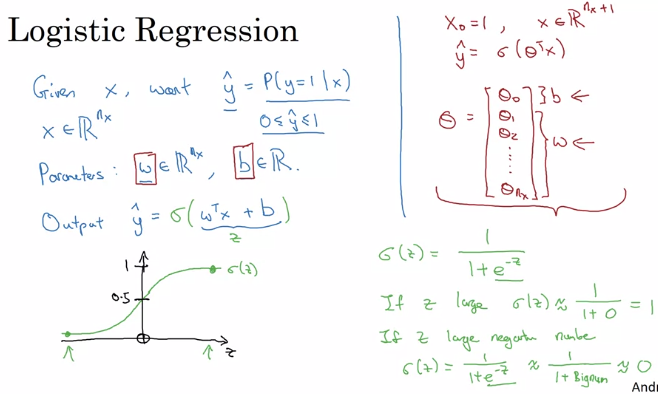 Logistic Regression
Given x, want ŷ = P(y=1|x)
x ∈ ℝ^{n_x}
0 ≤ ŷ ≤ 1
Parameters: w ∈ ℝ^{n_x}, b ∈ ℝ.
Output ŷ = σ(w^T x + b)
z
1
0.5
σ(z)
0
z
X_0 = 1, x ∈ ℝ^{n_x+1}
ŷ = σ(θ^T x)
θ = [θ_0 θ_1 θ_2 ⋮ θ_{n_x}]
} b ←
} w ←
σ(z) = 1 / (1 + e^{-z})
If z large σ(z) ≈ 1 / (1 + 0) = 1
If z large negative number
σ(z) = 1 / (1 + e^{-z}) ≈ 1 / (1 + Bignum) ≈ 0
Andr